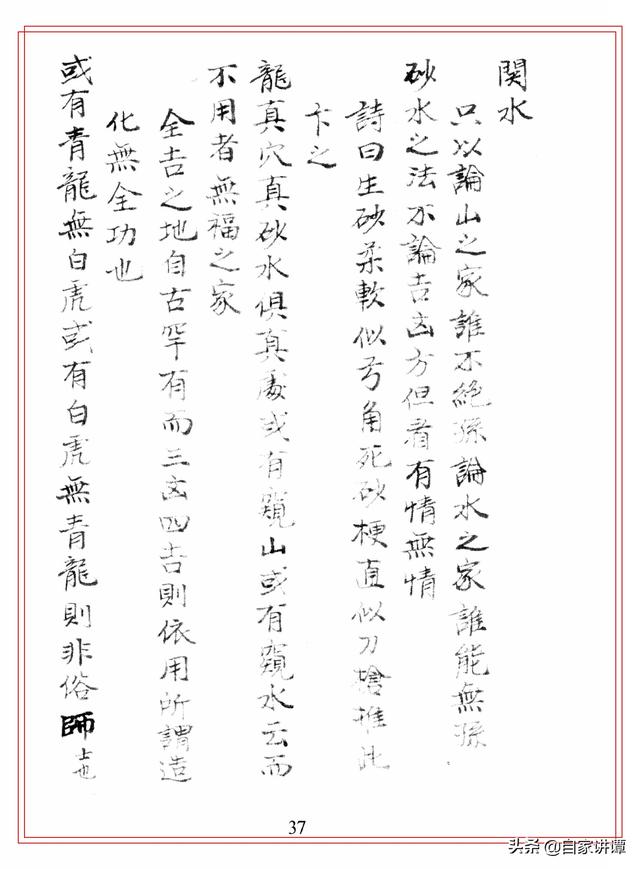 関水
只以論山之家誰不絕孫論水之家誰能無孫
砂水之法不論吉凶方但看有情無情
詩曰生砂柔軟似弓角死砂梗直似刀槍推此
卞之
龍真穴真砂水俱真處或有窺山或有窺水云而
不用者無福之家
全吉之地自古罕有而三凶四吉則依用所謂造
化無全功也
或有青龍無白虎或有白虎無青龍則非俗師也
37
头条 @自家讲谭